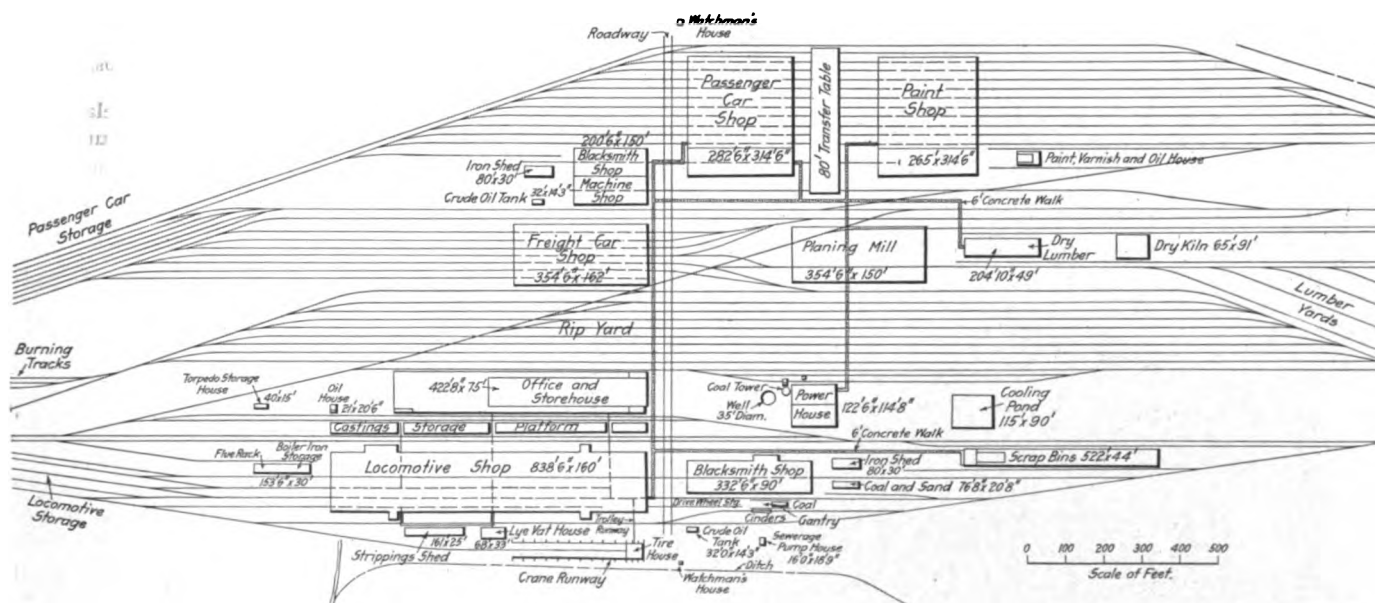 Watchman's
House
Roadway
Passenger
Car
Shop
282'6"x314'6"
80' Transfer Table
Paint
Shop
265'x314'6"
200'6"x150'
Blacksmith
Shop
Machine
Shop
Iron Shed
80'x30'
32'x14'3"
Crude Oil Tank
Paint, Varnish and Oil House
6' Concrete Walk
Passenger Car
Storage
Freight Car
Shop
354'6"x162'
Planing Mill
354'6"x150'
Dry
Lumber
204'10"x49'
Dry Kiln 65'x91'
Lumber
Yards
Rip Yard
Burning
Tracks
Torpedo Storage
House
40'x15'
Oil
House
21'x20'6"
422'8"x75'
Office and
Storehouse
Coal Tower
Well
35' Diam.
Power
House
122'6"x114'8"
Cooling
Pond
115'x90'
Castings
Storage
Platform
6' Concrete Walk
Flue Rack
Boiler Iron
Storage
153'6"x30'
Locomotive Shop 838'6"x160'
Blacksmith Shop
332'6"x90'
Iron Shed
80'x30'
Scrap Bins 522'x44'
Coal and Sand 76'8"x20'8"
Locomotive
Storage
Drive Wheel Stg.
Coal
Cinders
Gantry
161'x25'
Strippings Shed
Lye Vat House
68'x33'
Trolley
Runway
Tire
House
Crane Runway
Crude Oil
Tank
32'0"x14'3"
Sewerage
Pump House
16'0"x18'9"
Ditch
Watchman's
House
0 100 200 300 400 500
Scale of Feet.